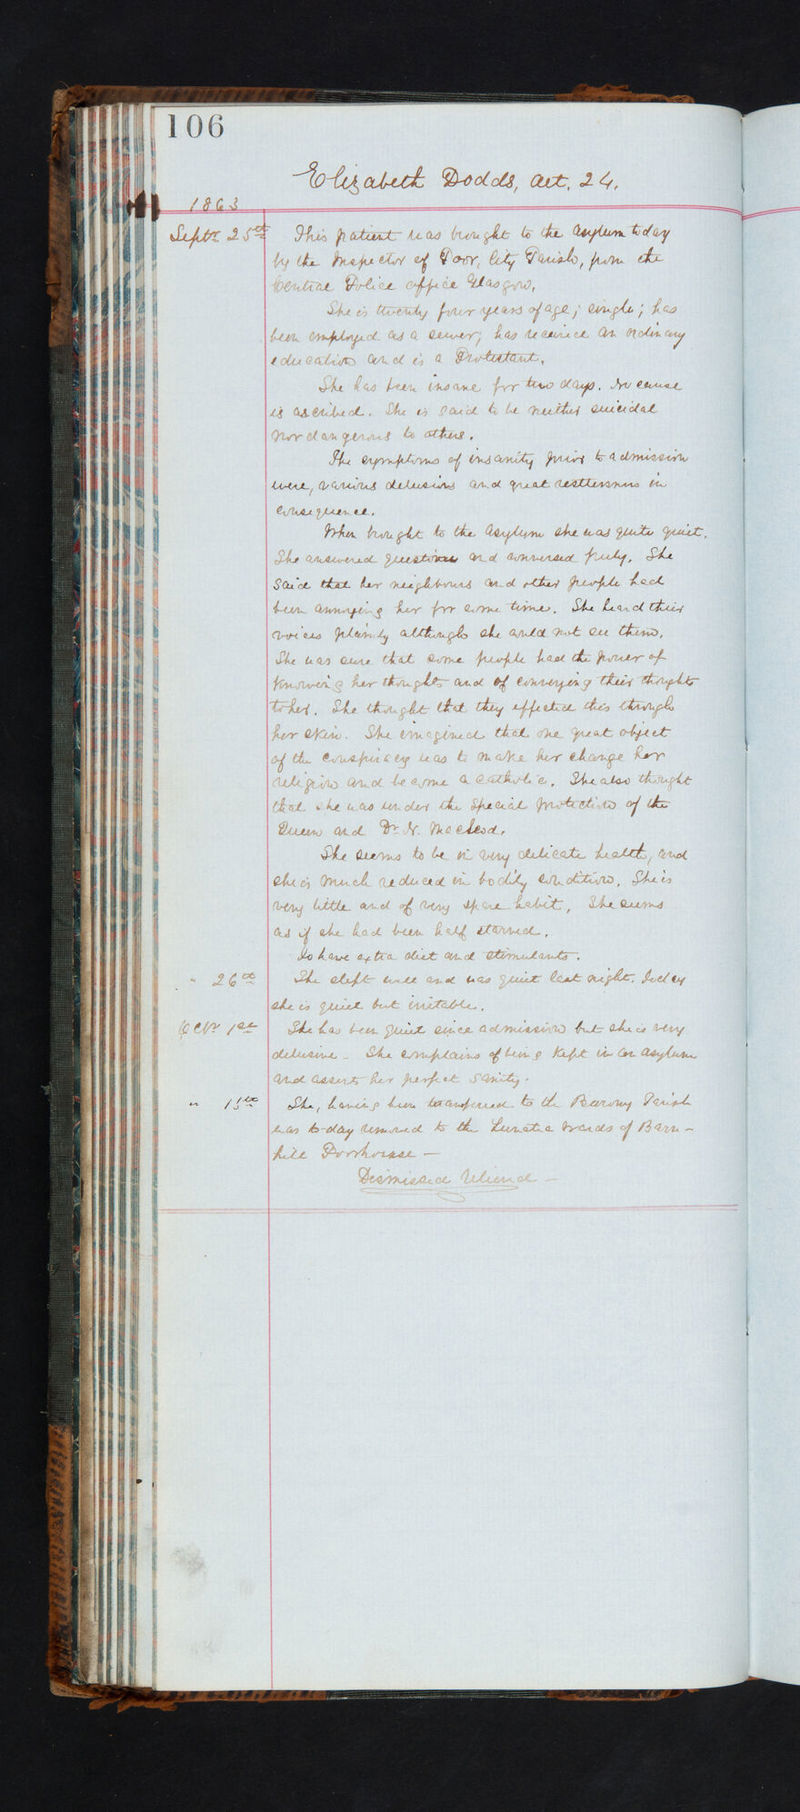 106
Elizabeth Dodds, aet. 24.
1863
Septr. 25th This patient was brought to the asylum today
by the Inspector of Poor, City Parish, from the
Central Police office Glasgow.
She is twenty four years of age; single; has
been employed as a sewer; has received an ordinary
education and is a Protestant.
She has been insane for two days. No cause
is ascribed. She is said to be neither suicidal
nor dangerous to others.
The symptoms of insanity prior to admission
were, various delusions and great restlessness in
consequence.
When brought to the asylum she was quite quiet.
She answered questions and conversed freely. She
said that her neighbours and other people had
been annoying her for some time. She heard their
voices plainly although she could not see them.
She was sure that some people had the power of
knowing her thoughts and of conveying their thoughts
to her. She thought that they effected this through
her skin. She imagined that one great object
of the conspiracy was to make her change her
religion and become a catholic. She also thought
that she was under the special protection of the
Queen and Dr. N. Macleod.
She seems to be in very delicate health, and
she is much reduced in bodily condition. She is
very little and of very spare habit. She seems
as if she had been half starved.
To have extra diet and stimulants.
" 26th She slept well and was quiet last night. Today
she is quiet but irritable.
Octr. 1st She has been quiet since admission but she is very
delusive. She complains of being kept in an asylum
and asserts her perfect sanity.
" 15th She, having been transferred to the Barony Parish
was to-day removed to the Lunatic wards of Barn-
hill Poorhouse —
Dismissed Relieved —